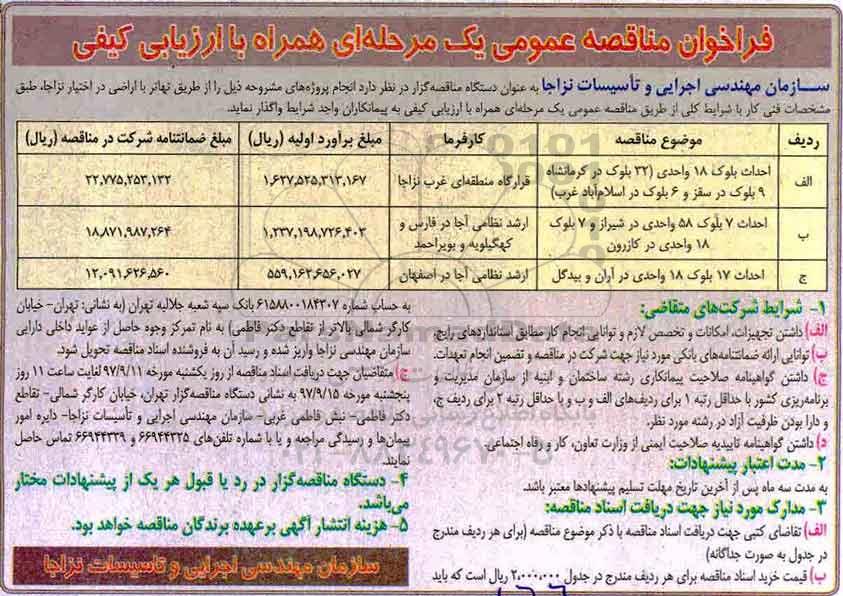 فراخوان مناقصه عمومی یک مرحله‌ای همراه با ارزیابی کیفی
سازمان مهندسی اجرایی و تأسیسات نزاجا به عنوان دستگاه مناقصه‌گزار در نظر دارد انجام پروژه‌های مشروحه ذیل را از طریق تهاتر با اراضی در اختیار نزاجا، طبق
مشخصات فنی کار با شرایط کلی از طریق مناقصه عمومی یک مرحله‌ای همراه با ارزیابی کیفی به پیمانکاران واجد شرایط واگذار نماید.
ردیف موضوع مناقصه کارفرما مبلغ برآورد اولیه (ریال) مبلغ ضمانتنامه شرکت در مناقصه (ریال)
الف احداث بلوک ۱۸ واحدی (۳۲ بلوک در کرمانشاه ۹ بلوک در سقز و ۶ بلوک در اسلام‌آباد غرب) قرارگاه منطقه‌ای غرب نزاجا ۱,۶۲۷,۵۲۵,۳۱۳,۱۶۷ ۲۲,۷۷۵,۲۵۳,۱۳۲
ب احداث ۷ بلوک ۵۸ واحدی در شیراز و ۷ بلوک ۱۸ واحدی در کازرون ارشد نظامی آجا در فارس و کهگیلویه و بویراحمد ۱,۲۳۷,۱۹۸,۷۲۶,۴۰۳ ۱۸,۸۷۱,۹۸۷,۲۶۴
ج احداث ۱۷ بلوک ۱۸ واحدی در آران و بیدگل ارشد نظامی آجا در اصفهان ۵۵۹,۱۶۲,۶۵۶,۰۲۷ ۱۲,۰۹۱,۶۲۶,۵۶۰
۱- شرایط شرکت‌های متقاضی:
الف) داشتن تجهیزات، امکانات و تخصص لازم و توانایی انجام کار مطابق استانداردهای رایج.
ب) توانایی ارائه ضمانتنامه‌های بانکی مورد نیاز جهت شرکت در مناقصه و تضمین انجام تعهدات.
ج) داشتن گواهینامه صلاحیت پیمانکاری رشته ساختمان و ابنیه از سازمان مدیریت و
برنامه‌ریزی کشور با حداقل رتبه ۱ برای ردیف‌های الف و ب و با حداقل رتبه ۲ برای ردیف ج،
و دارا بودن ظرفیت آزاد در رشته مورد نظر.
د) داشتن گواهینامه تاییدیه صلاحیت ایمنی از وزارت تعاون، کار و رفاه اجتماعی.
۲- مدت اعتبار پیشنهادات:
به مدت سه ماه پس از آخرین تاریخ مهلت تسلیم پیشنهادها معتبر باشد.
۳- مدارک مورد نیاز جهت دریافت اسناد مناقصه:
الف) تقاضای کتبی جهت دریافت اسناد مناقصه با ذکر موضوع مناقصه (برای هر ردیف مندرج
در جدول به صورت جداگانه)
ب) قیمت خرید اسناد مناقصه برای هر ردیف مندرج در جدول ۲,۰۰۰,۰۰۰ ریال است که باید
به حساب شماره ۶۱۵۸۸۰۰۱۸۴۳۰۷ بانک سپه شعبه جلالیه تهران (به نشانی: تهران- خیابان
کارگر شمالی بالاتر از تقاطع دکتر فاطمی) به نام تمرکز وجوه حاصل از عواید داخلی دارایی
سازمان مهندسی نزاجا واریز شده و رسید آن به فروشنده اسناد مناقصه تحویل شود.
ج) متقاضیان جهت دریافت اسناد مناقصه از روز یکشنبه مورخه ۹۷/۹/۱۱ لغایت ساعت ۱۱ روز
پنجشنبه مورخه ۹۷/۹/۱۵ به نشانی دستگاه مناقصه‌گزار تهران، خیابان کارگر شمالی- تقاطع
دکتر فاطمی- نبش فاطمی غربی- سازمان مهندسی اجرایی و تأسیسات نزاجا- دایره امور
پیمان‌ها و رسیدگی مراجعه و یا با شماره تلفن‌های ۶۶۹۴۴۳۲۵ و ۶۶۹۴۴۳۳۹ تماس حاصل
نمایند.
۴- دستگاه مناقصه‌گزار در رد یا قبول هر یک از پیشنهادات مختار
می‌باشد.
۵- هزینه انتشار آگهی برعهده برندگان مناقصه خواهد بود.
سازمان مهندسی اجرایی و تاسیسات نزاجا